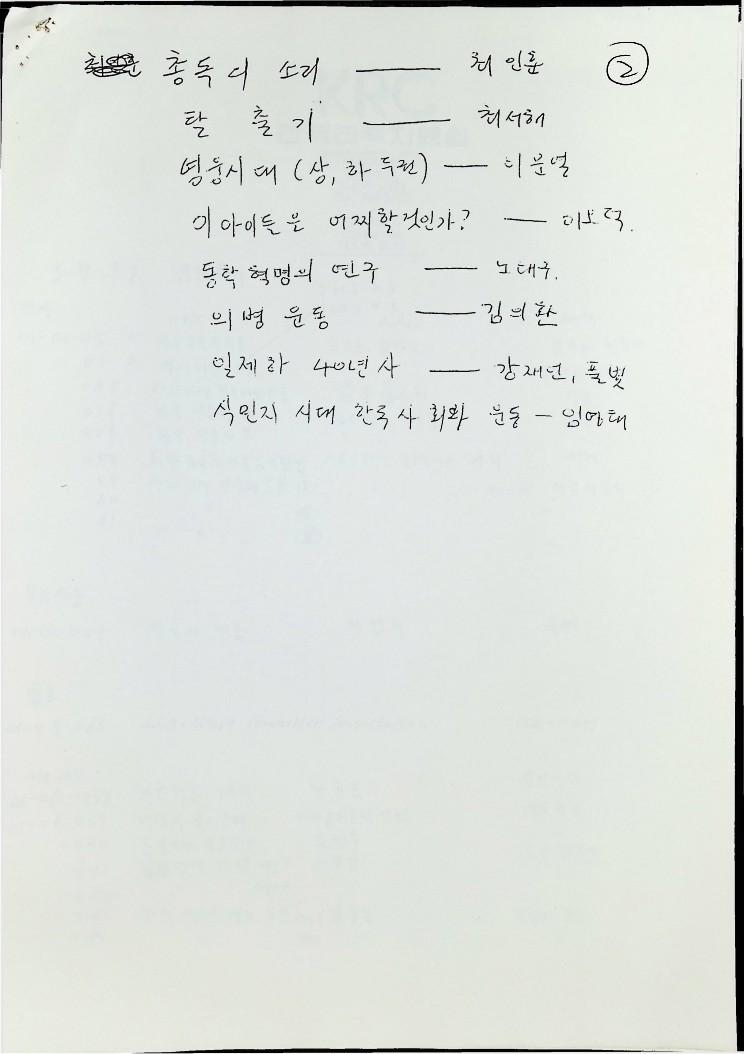 총독의 소리 —— 최인훈 ②
탈 출 기 —— 최서해
영웅시대 (상, 하 두권) —— 이문열
이 아이들은 어찌할것인가? —— 이오덕.
동학혁명의 연구 —— 노태구.
의병 운동 —— 김의환
일제하 40년사 —— 강재언, 풀빛
식민지 시대 한국사회와 운동 — 임영태